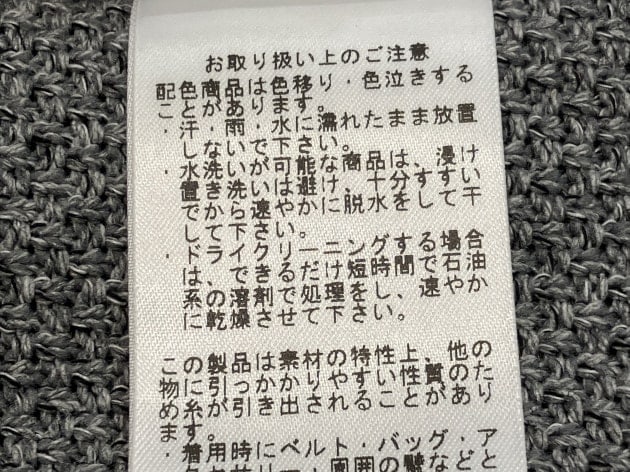 お取り扱い上のご注意
配色商品は色移り・色泣きする
ことがあります。
・汗・雨・水に濡れたまま放置
しないで下さい。
・水洗いが可能な商品は、浸け
置き洗いは避け、十分すすい
でから速やかに脱水をして干
して下さい。
・ドライクリーニングする場合
は、できるだけ短時間で石油
系の溶剤で処理をし、速やか
に乾燥させて下さい。
この製品は素材の特性上、他の
物に引っかかりやすい性質のた
め糸が引き出されることがあり
ます。
・着用時にベルト・バッグ・ア
クセサリー・周囲の壁などと